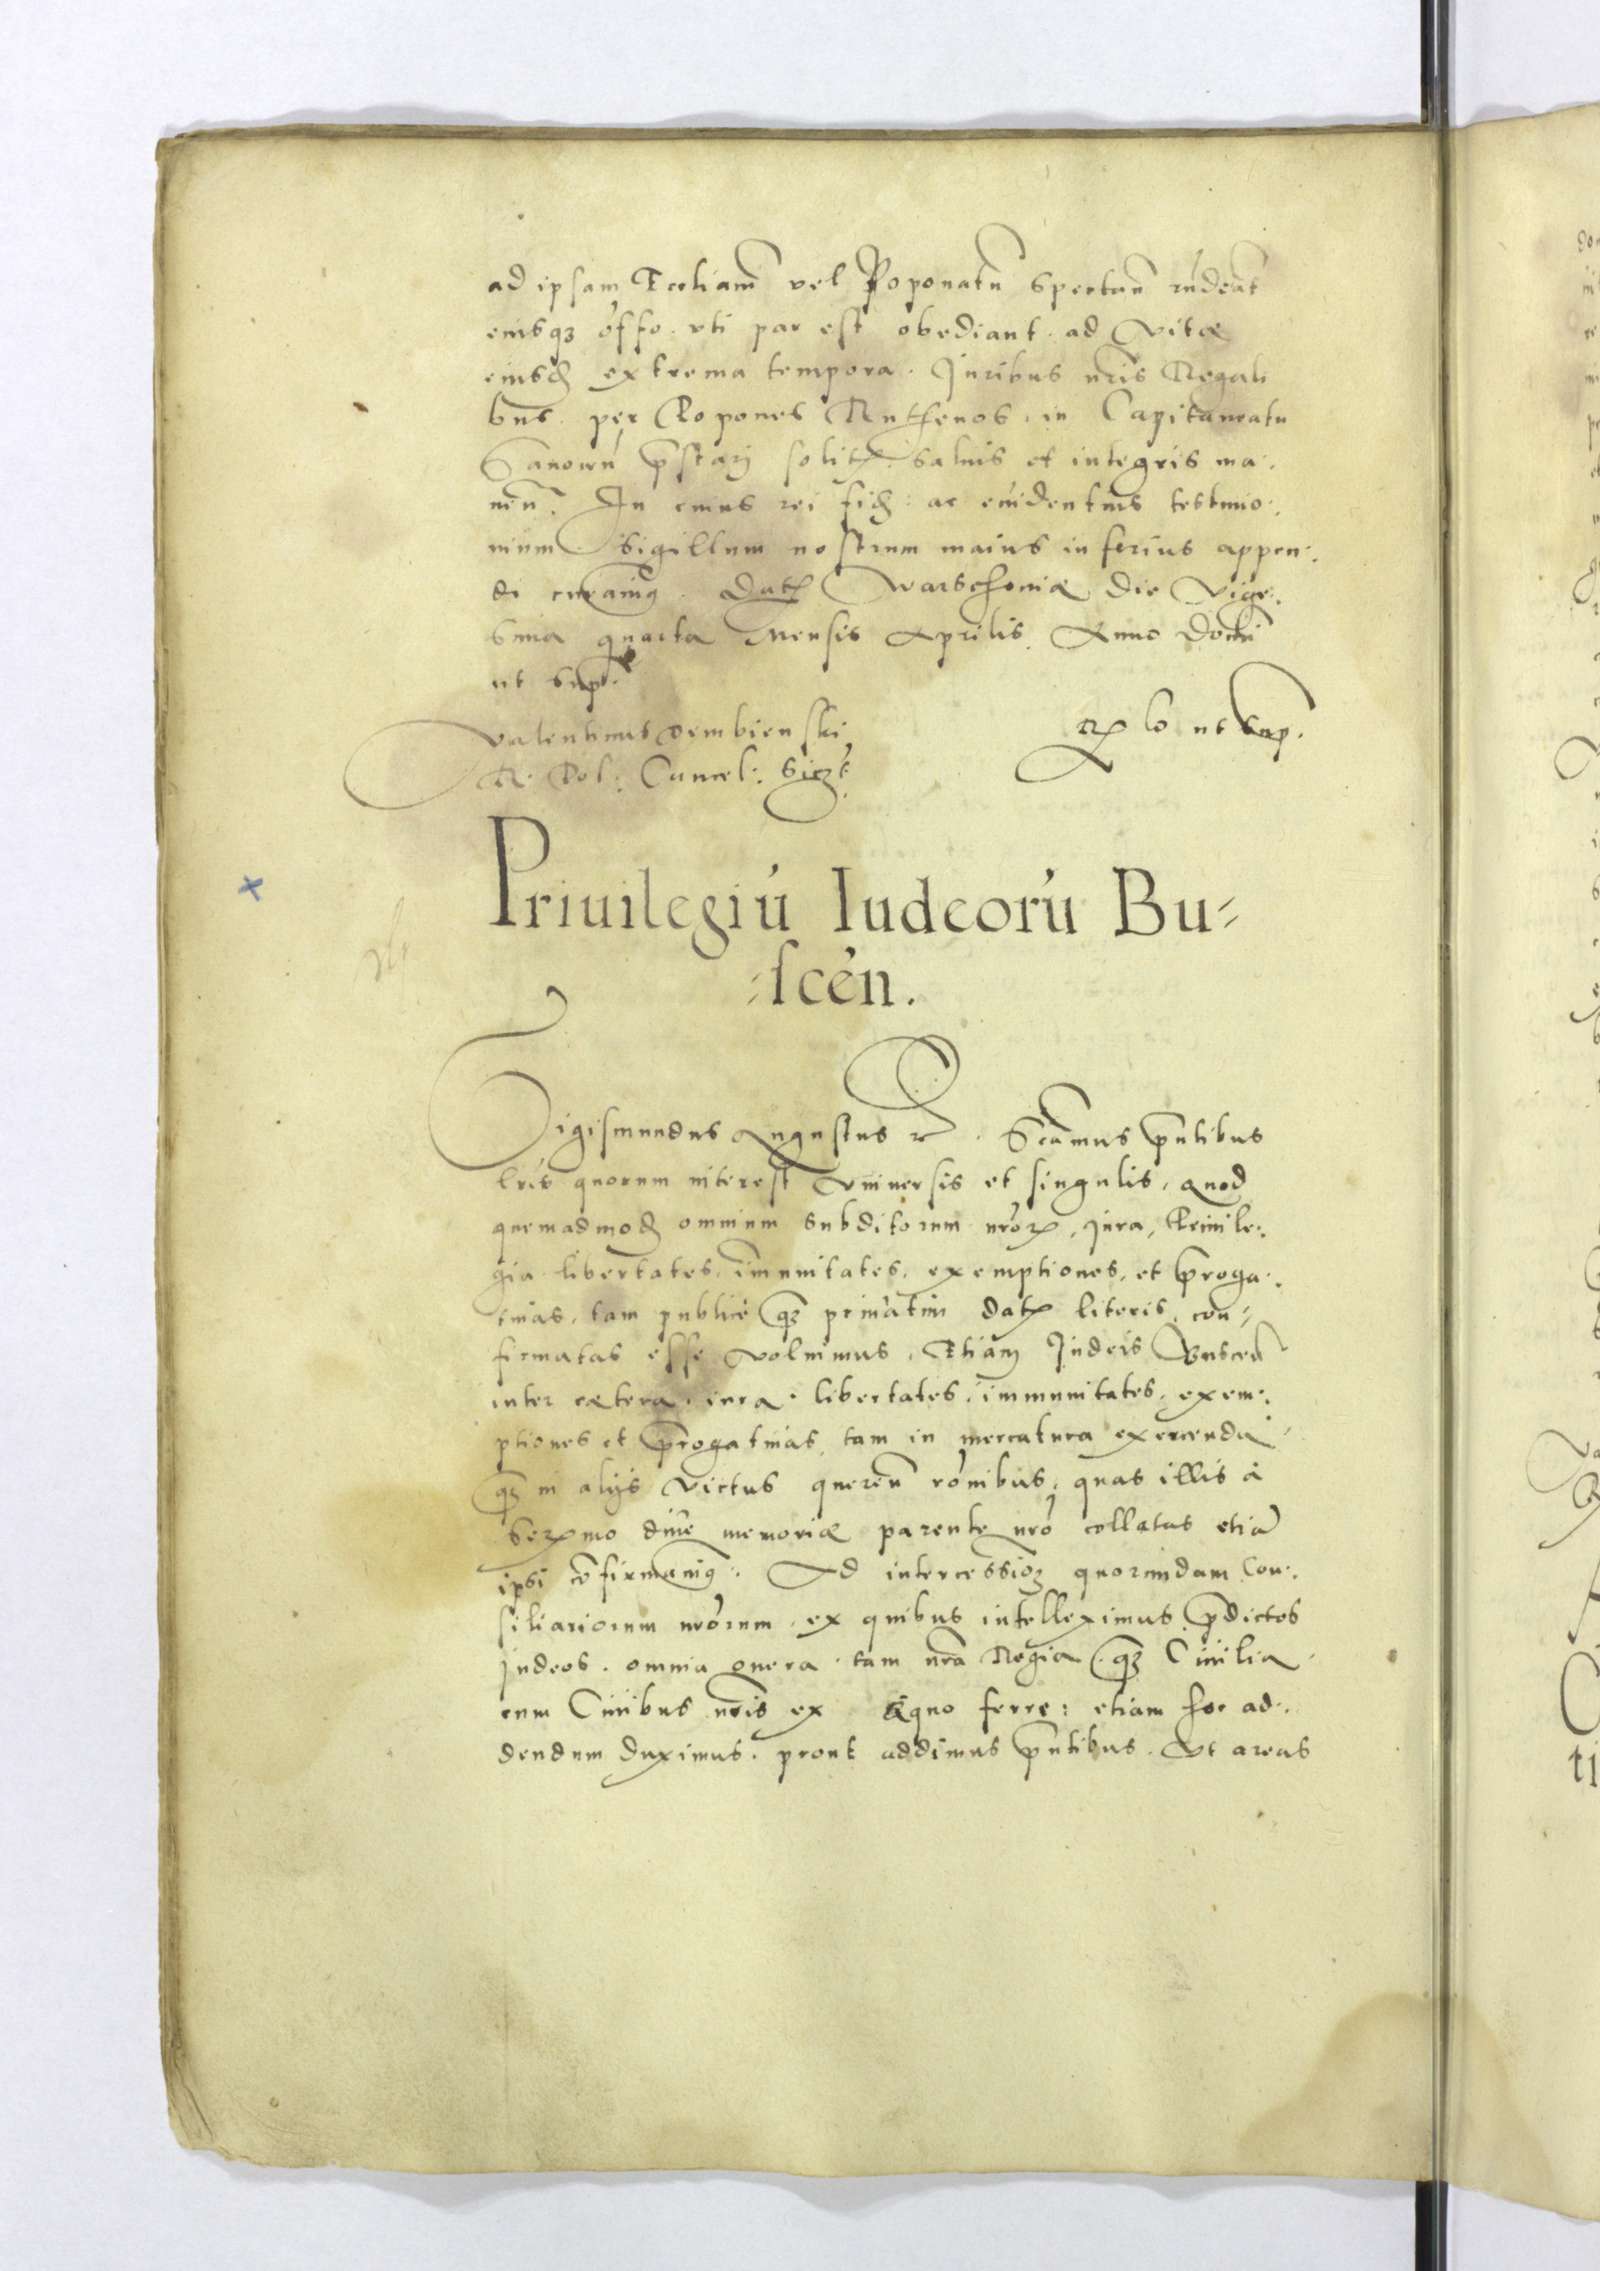 ad ipsam Eccliam vel Poponatu spectan rndeat
eiusq3 offo. vti par est obediant. ad vitæ
eiusd extrema tempora. Juribus nris Regali
bus. per Popones Ruthenos. in Capitaneatu
Sanocen pstari solitis. saluis et integris ma:
nen. In cuius rei fid: ac euidentius testimo:
nium Sigillum nostrum maius inferius appen:
di curauimg. Dat Warschouiæ die Vige:
sima quarta Mensis Aprilis. Anno Domi
ut sup.
Valentinus Dembienski
R. Pol: Cancel: Sszt.
Rlo ut sup.
Priuilegiú Iudeorú Bu-
-scén.
Sigismundus Augustus rc. Scamus pntibus
lris quorum interest vniuersis et singulis. quod
quemadmod omnium subditorum nror, Jura, Priuile:
gia libertates, imunitates, exemptiones, et proga:
tiuas, tam publice q3 priuatim dat literis, con-
firmatas esse voluimus. Etiam Judeis Buscen
inter cætera. iura. libertates. immunitates. exem:
ptiones et progatiuas, tam in mercatura exercenda
q3 in alijs victus queren ronibus, quas illis à
Sermo diue memoriæ parente nro collatas etia
ipsi cofirmauimg. Ad intercessio3 quorundam Con:
siliariorum nrorum. ex quibus intelleximus pdictos
Judeos. omnia onera. tam nra Regia. q3 Ciuilia.
cum Ciuibus nris ex æquo ferre: etiam hoc ad:
dendum duximus. prout addimus pntibus. Vt areas